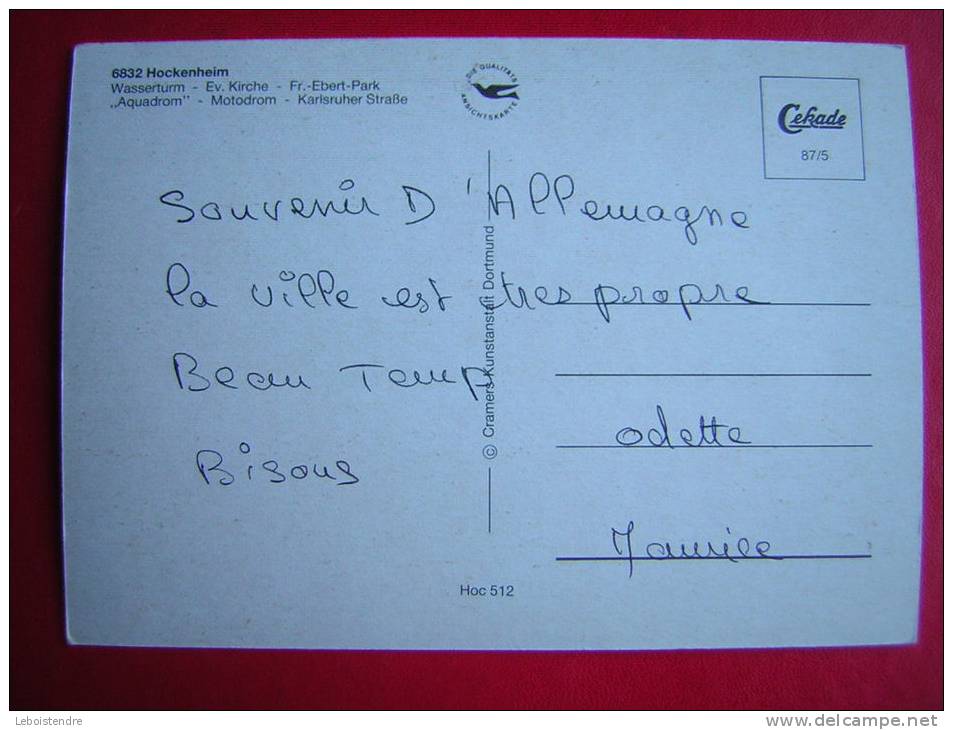 6832 Hockenheim
Wasserturm - Ev. Kirche - Fr.-Ebert-Park
„Aquadrom" - Motodrom - Karlsruher Straße
DIE QUALITÄTS
ANSICHTSKARTE
Cekade
87/5
Souvenir D'Allemagne
la ville est tres propre
Beau Temp
Bisous
odette
Maurice
© Cramers Kunstanstalt Dortmund
Hoc 512
Leboistendre
www.delcampe.net